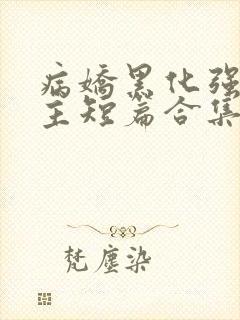 病嬌黑化強
主短篇合集
梵塵染